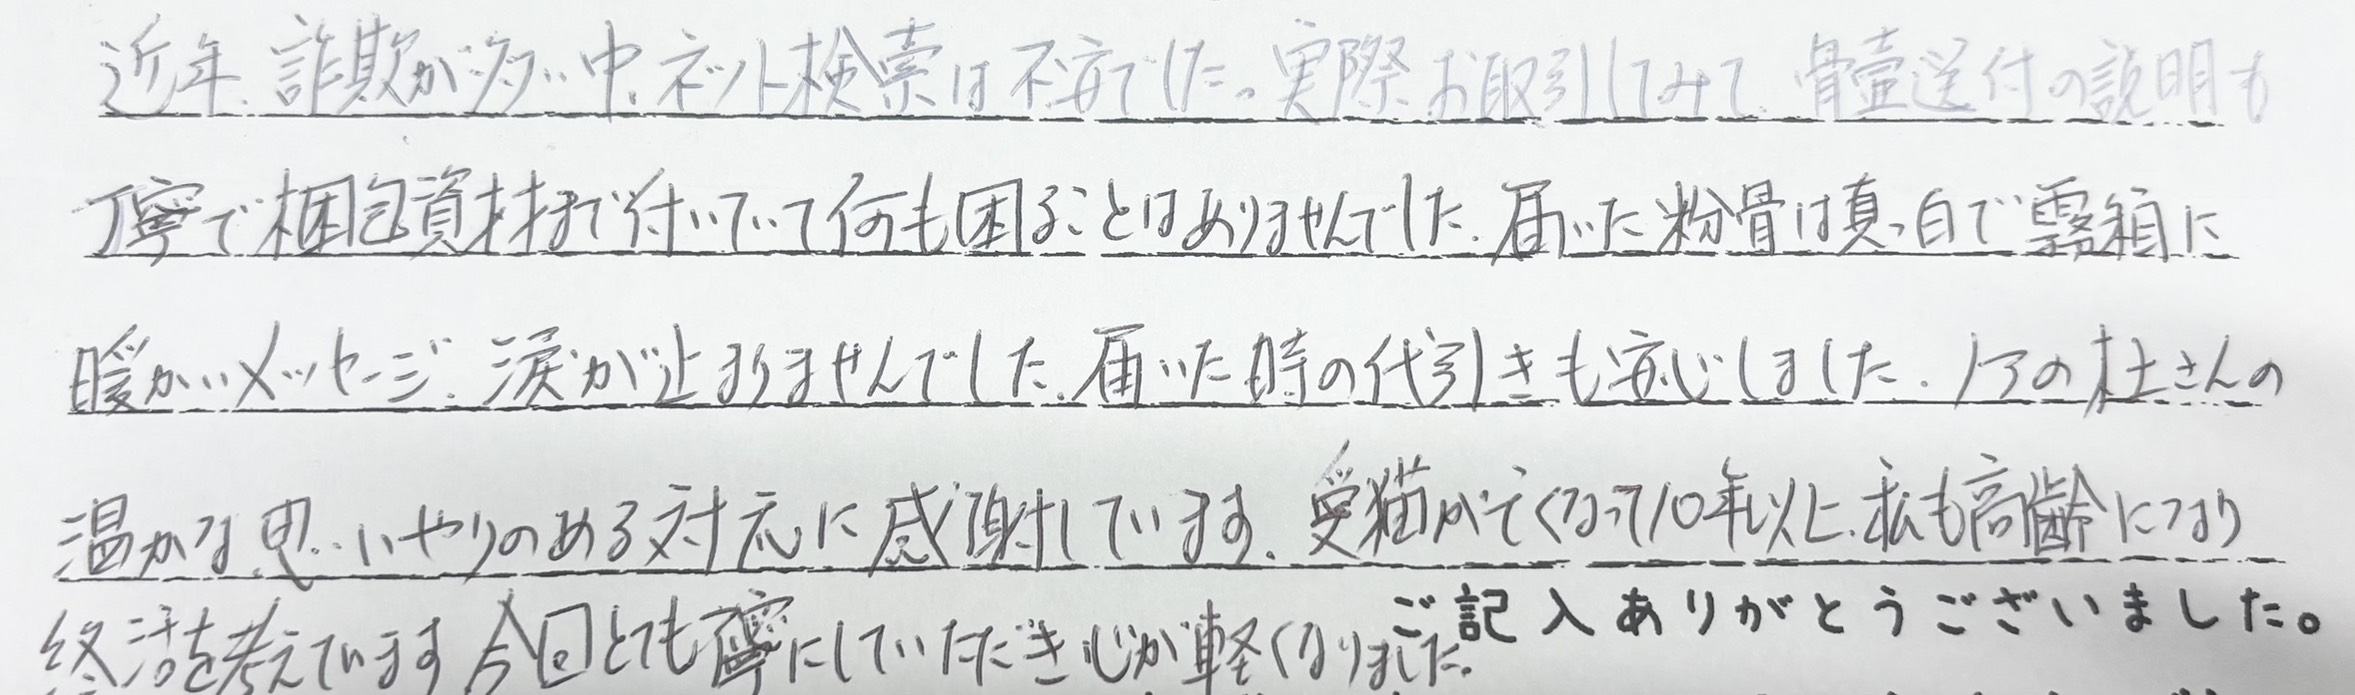 近年、詐欺が多い中、ネット検索は不安でした。実際お取引してみて、骨壷送付の説明も
丁寧で梱包資材まで付いていて何も困ることはありませんでした。届いた粉骨は真っ白で霊箱に
暖かいメッセージ、涙が止まりませんでした。届いた時の代引きも安心しました。ノアの杜さんの
温かな思いやりのある対応に感謝しています。愛猫が亡くなって10年以上、私も高齢になり
終活を考えています 今回とても丁寧にしていただき心が軽くなりました。
ご記入ありがとうございました。